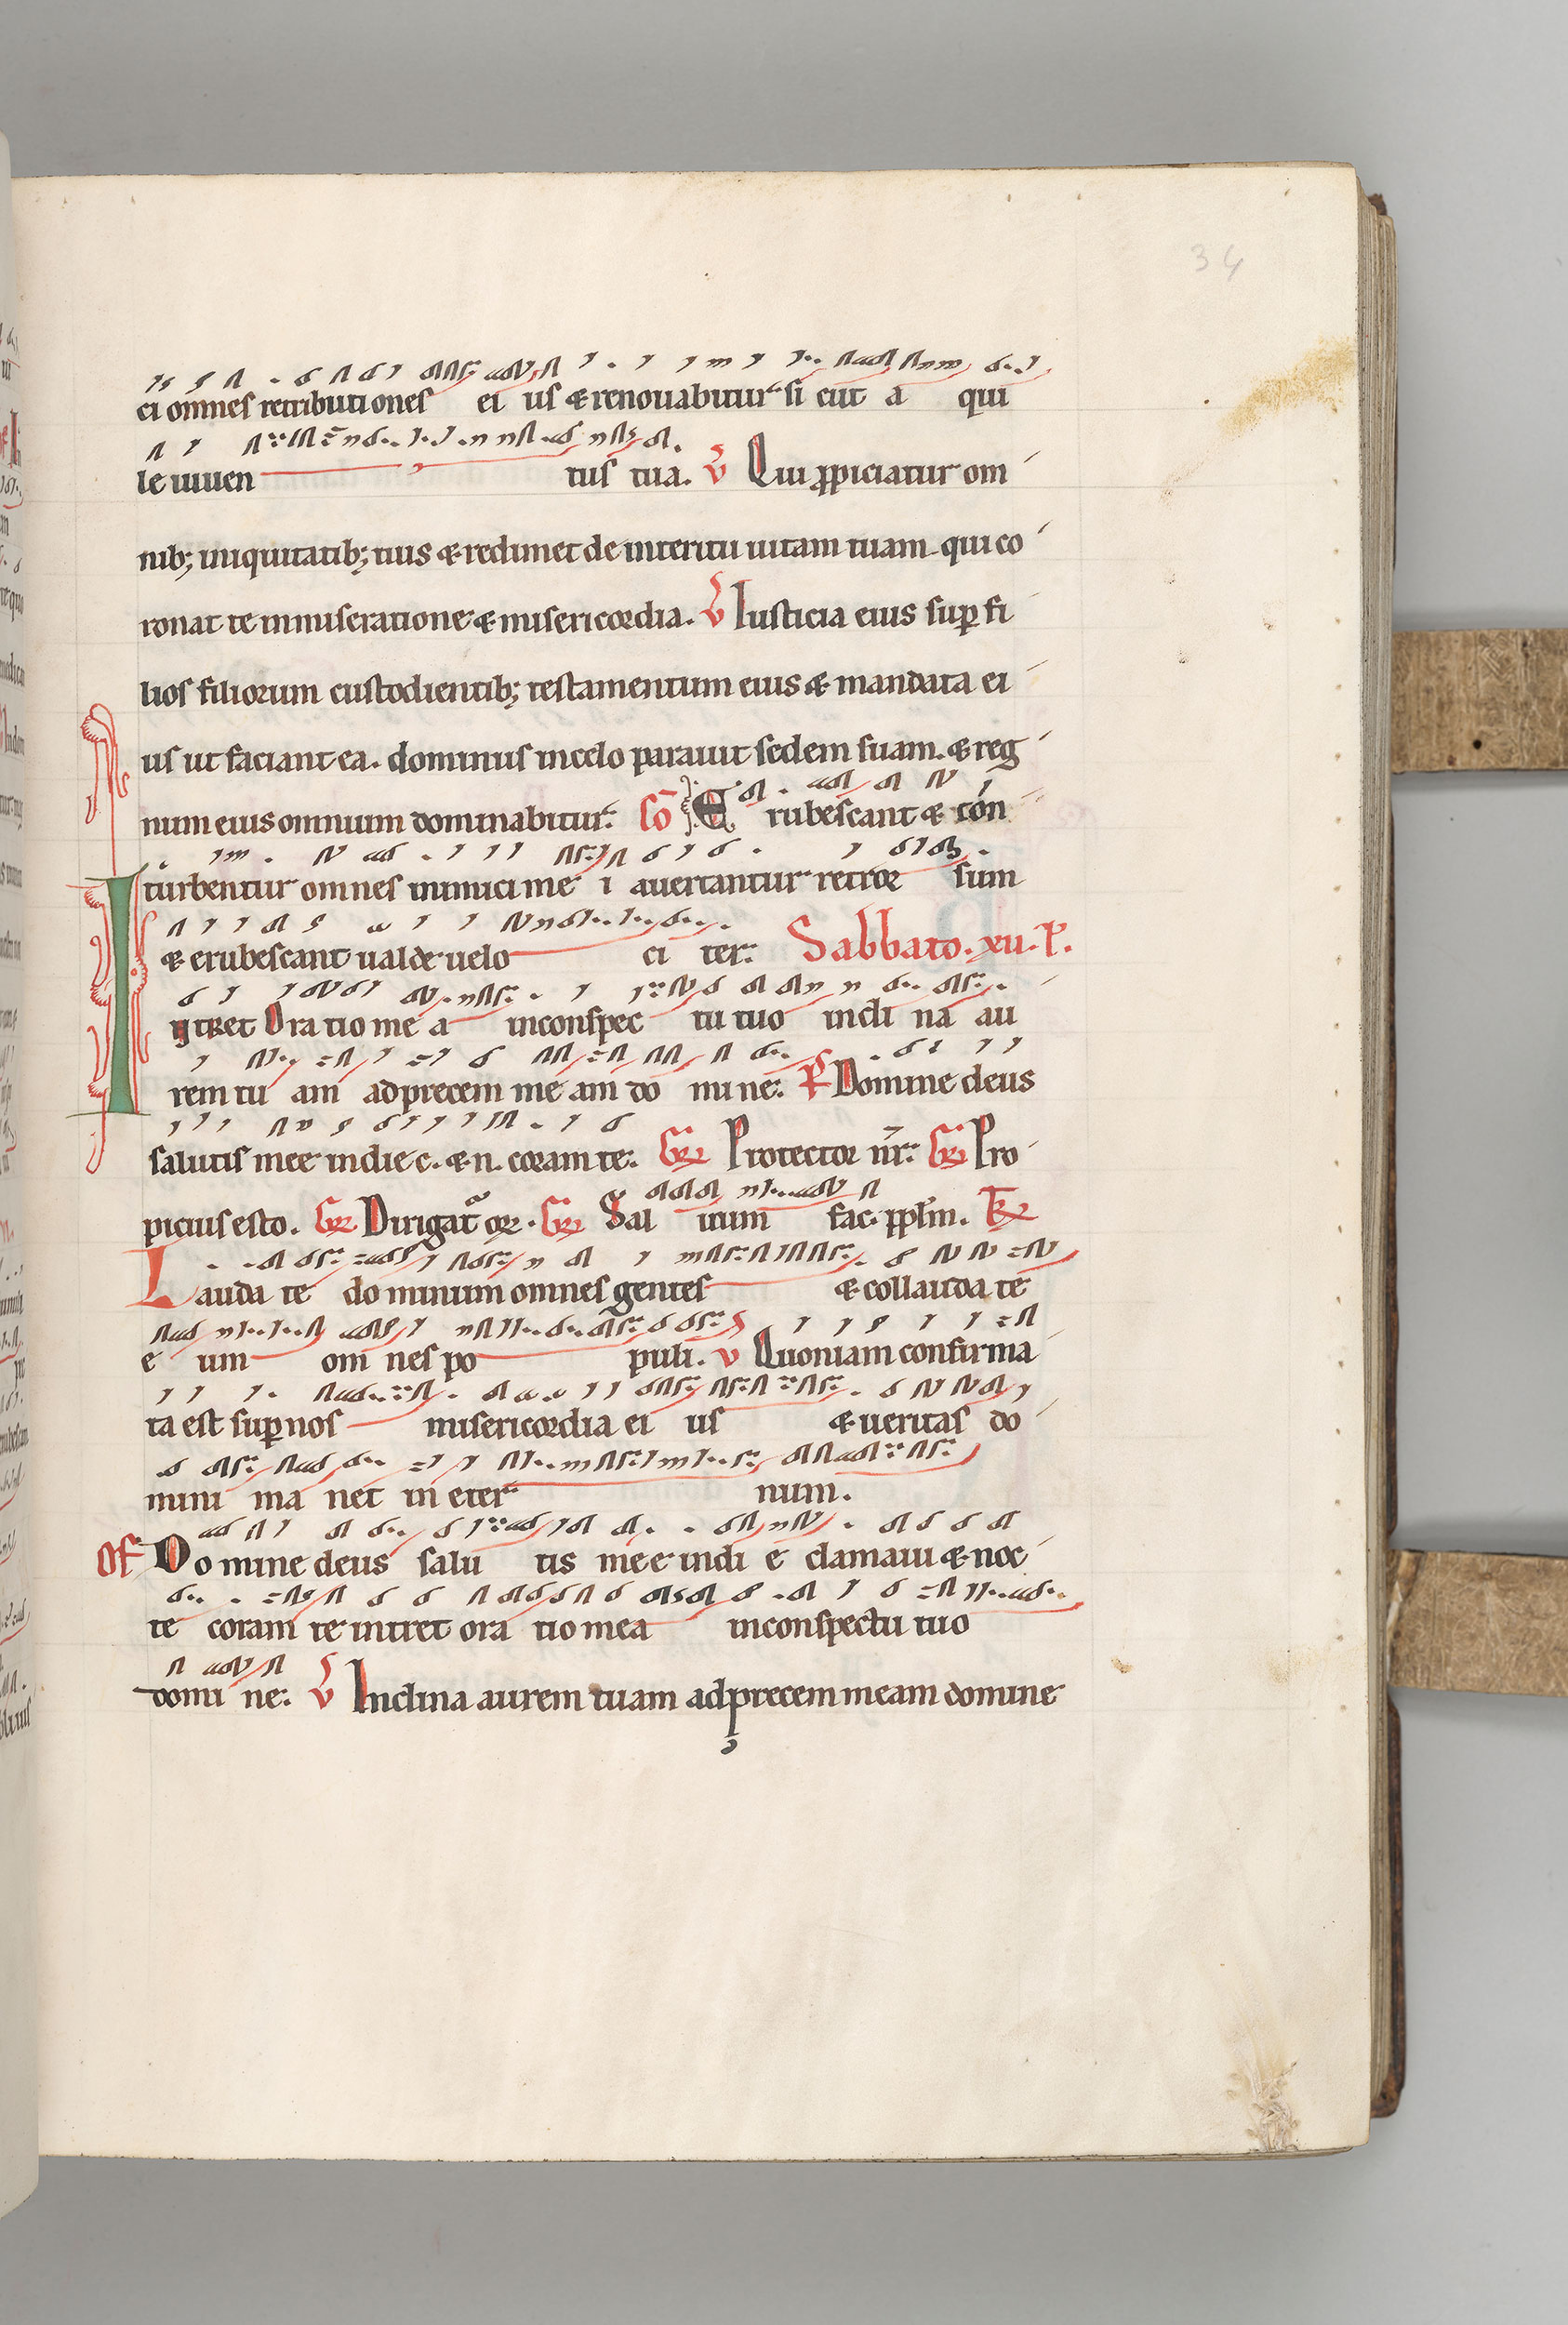 34
ei omnes retributiones ei us & renouabitur si cut a qui
le iuuen tus tua. v Qui ppiciatur om
nib; iniquitatib; tuis & redimet de interitu uitam tuam qui co
ronat te inmiseratione & misericordia. v Iusticia eius sup fi
lios filiorum custodientib; testamentum eius & mandata ei
us ut faciant ea. dominus incelo parauit sedem suam. & reg
num eius omnium dominabitur. Co E rubescant & con
turbentur omnes inimici me i auertantur retror sum
& erubescant ualde uelo ci ter. Sabbato. xii. L.
INtret Ora tio me a inconspec tu tuo incli na au
rem tu am adprecem me am do mi ne. Ps Domine deus
salutis mee indie c. & n. coram te. Gr Protector nr. Gr Pro
picius esto. Gr Dirigat or. Gr Sal uum fac. pplm. Tr
Lauda te do minum omnes gentes & collauda te
e um om nes po puli. v Quoniam confirma
ta est sup nos misericordia ei us & ueritas do
mini ma net in eter num.
Of Do mine deus salu tis mee indi e clamaui & noc
te coram te intret ora tio mea inconspectu tuo
domi ne. v Inclina aurem tuam adprecem meam domine